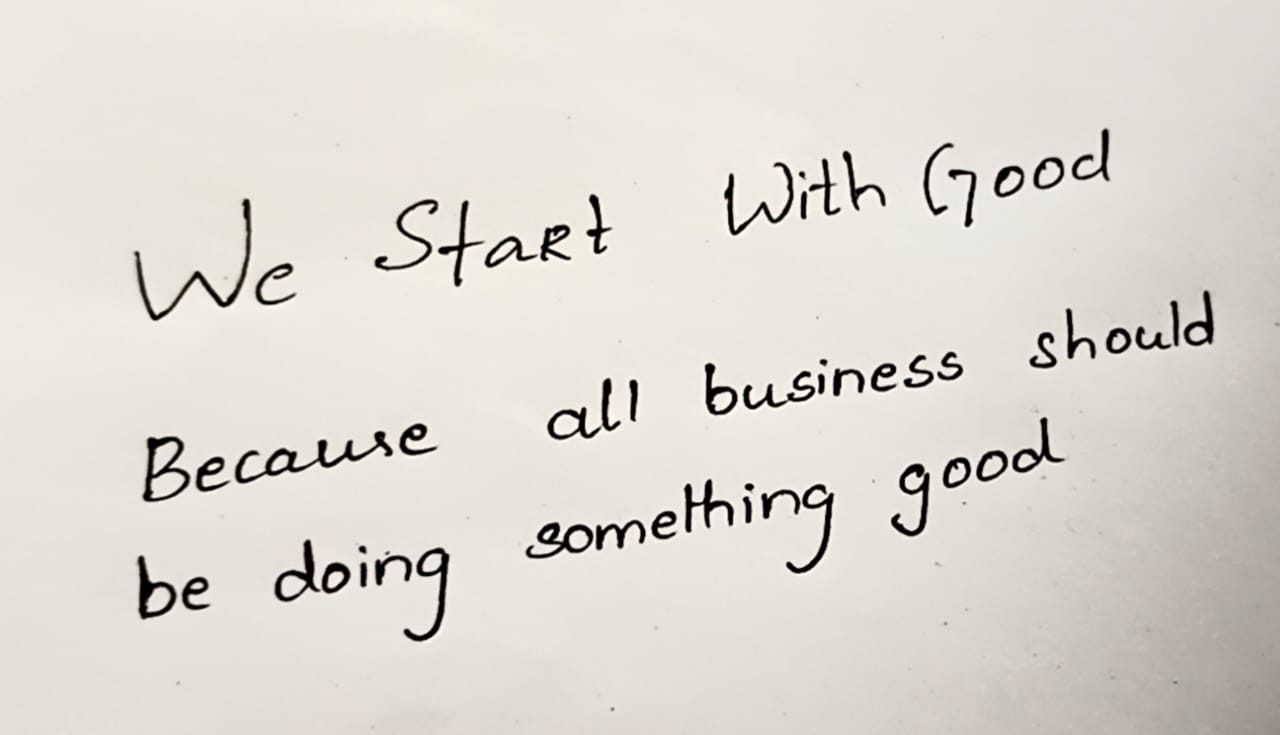 We Start With Good
Because all business should
be doing something good